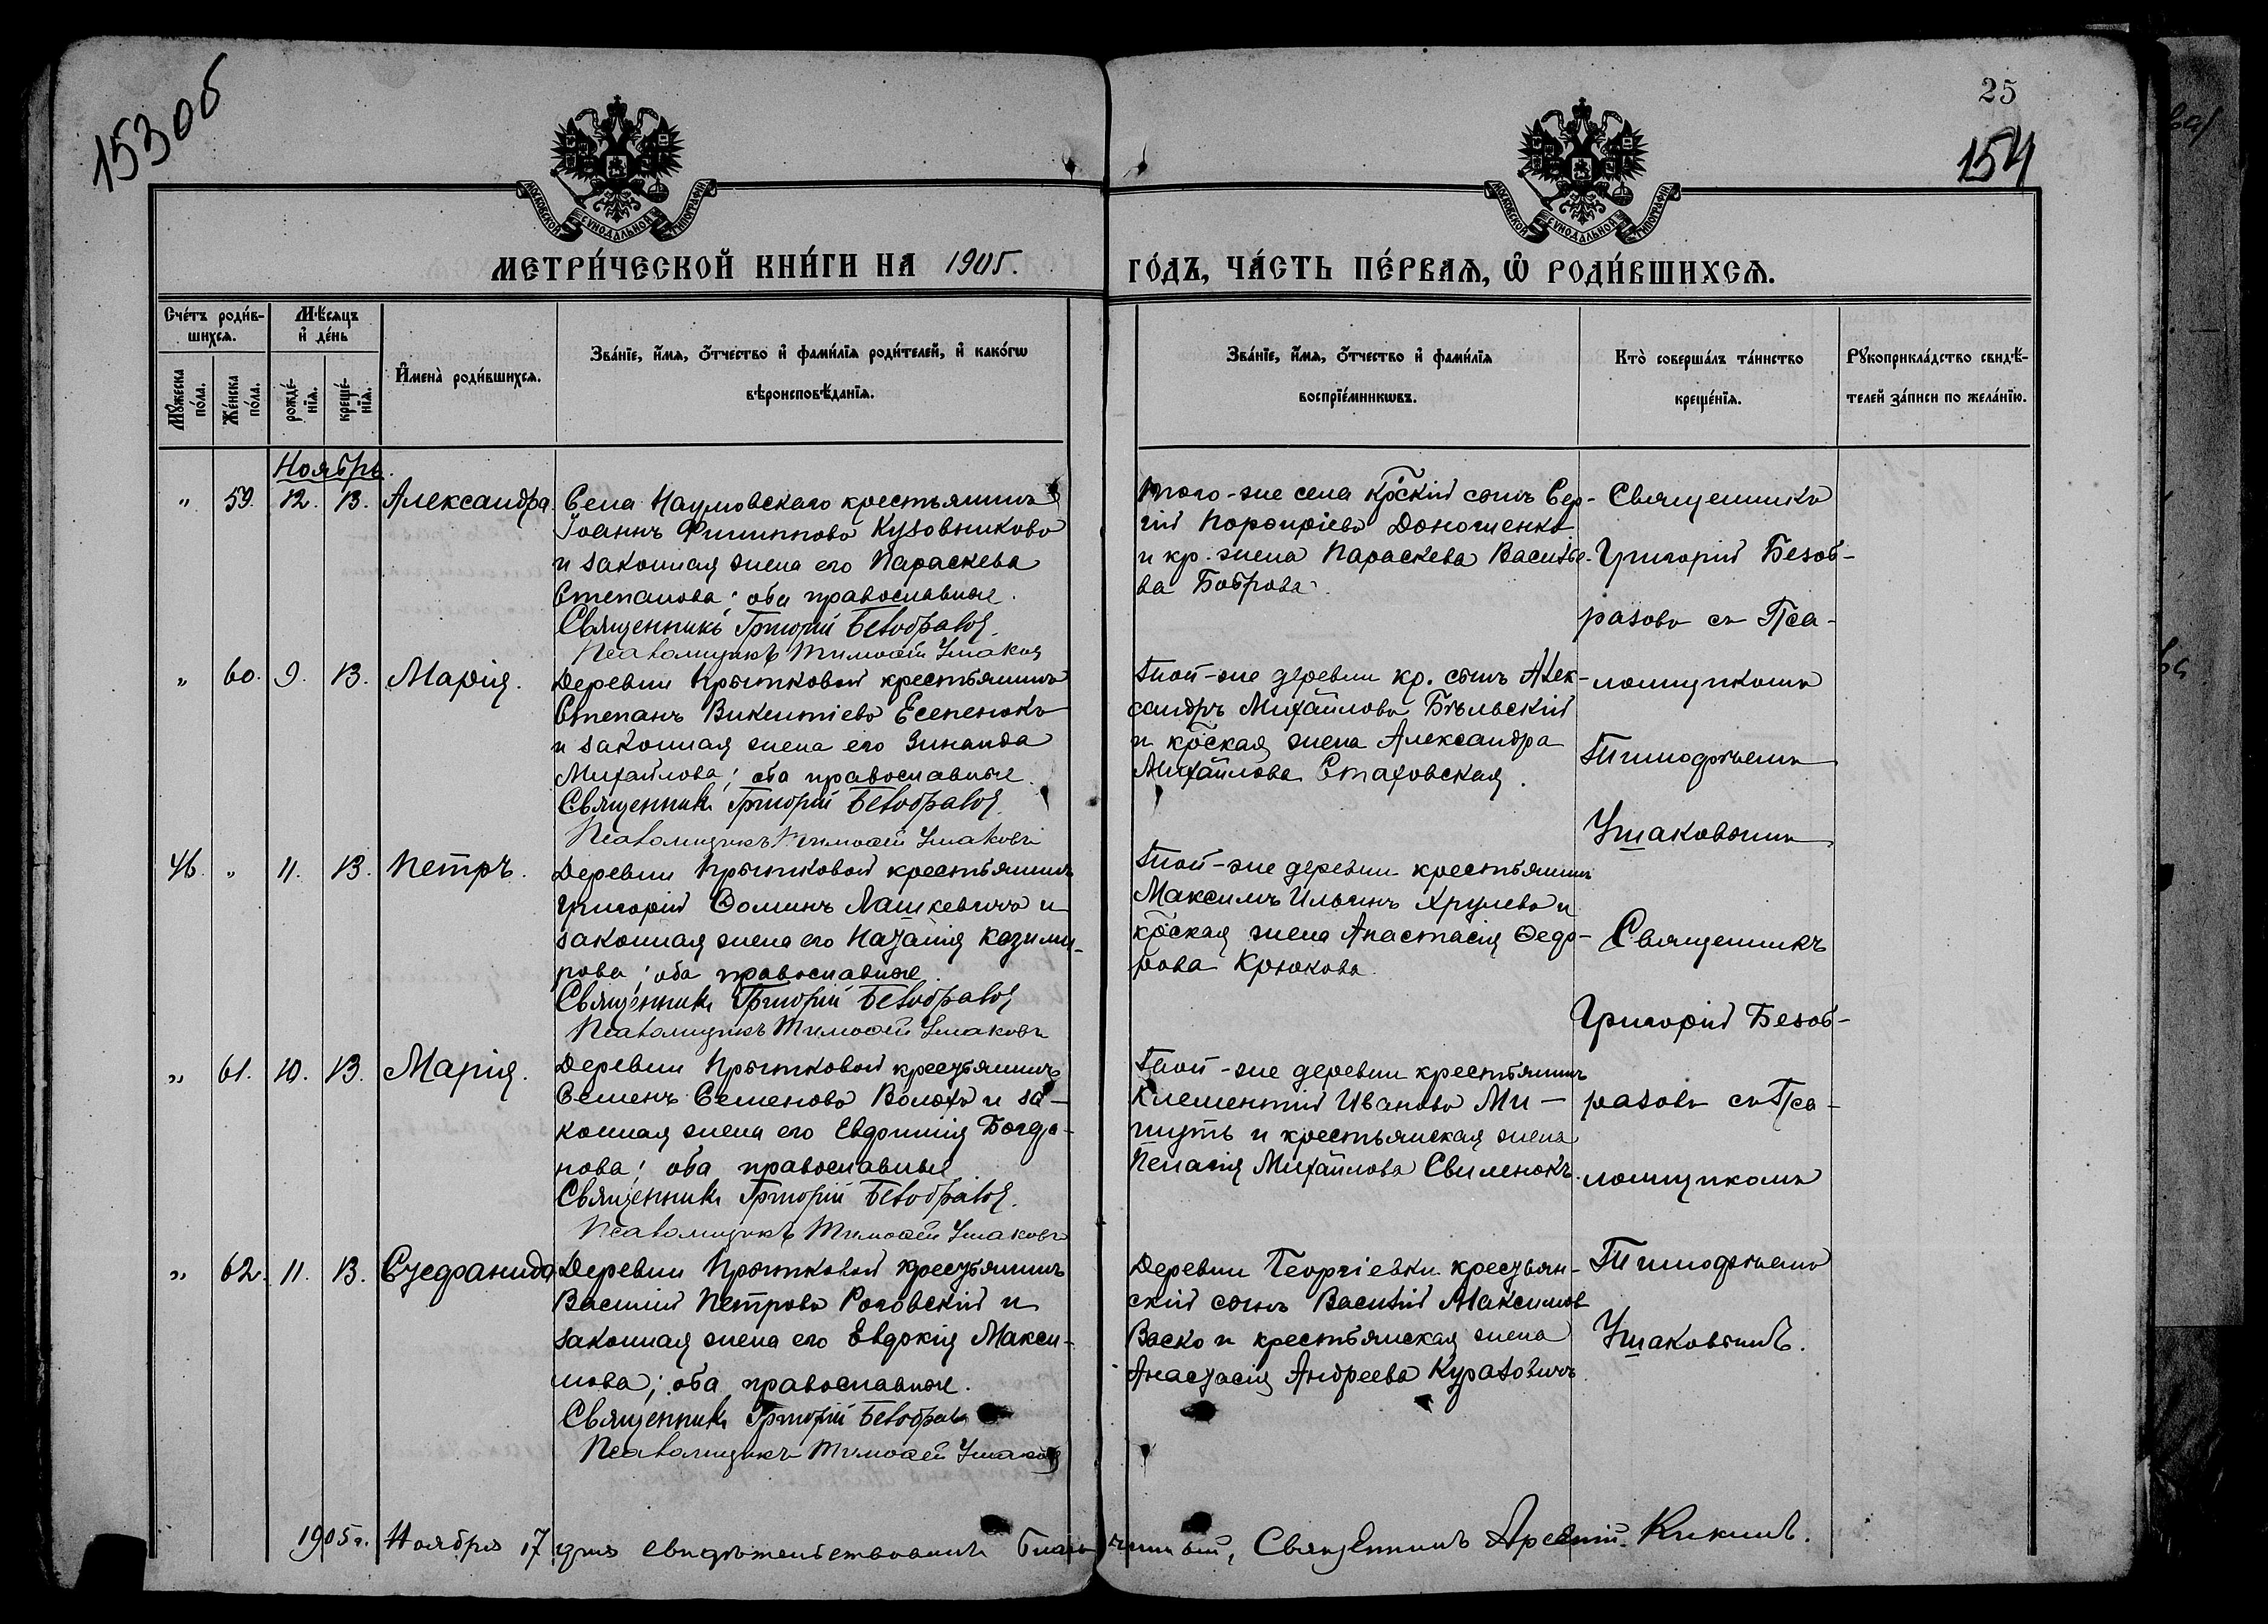 153 об
25
154
МОСКОВСКОЙ СУНОДАЛЬНОЙ ТИПОГРАФІИ
МОСКОВСКОЙ СУНОДАЛЬНОЙ ТИПОГРАФІИ
МЕТРИ́ЧЕСКОЙ КНИ́ГИ НА 1905. ГО́ДЪ, ЧА́СТЬ ПЕ́РВАЯ, Ѡ РОДИ́ВШИХСЯ.
Сче́тъ роди́в-
шихся.
Мꙋ́жеска по́ла.
Же́нска по́ла.
Мѣ́сяцъ
и҆ де́нь
рожде́-
нїя.
креще́-
нїя.
И҆мена̀ роди́вшихся.
Зва́нїе, и҆́мя, ѻ҆́тчество и҆ фами́лїя роди́телей, и҆ како́гѡ
вѣроисповѣ́данїя.
Зва́нїе, и҆́мя, ѻ҆́тчество и҆ фами́лїя
воспрїе́мникѡвъ.
Кто̀ соверша́лъ та́инство
креще́нїя.
Рꙋкоприкла́дство свидѣ́-
телей за́писи по жела́нїю.
Ноябрь.
„ 59. 12. 13. Александра.
Села Наумовскаго крестьянинъ
Іоаннъ Филипповъ Кузовниковъ
и законная жена его Параскева
Степанова; оба православные.
Священникъ Григорій Безобразов
Псаломщикъ Тимоѳей Ушаков
Того-же села кр̃скій сынъ Сер-
гій Порфиріевъ Доношенко
и кр. жена Параскева Василье-
ва Боброва.
„ 60. 9. 13. Марія.
Деревни Прытковой крестьянинъ
Степанъ Викентіевъ Есепенокъ
и законная жена его Зинаида
Михайлова; оба православные.
Священникъ Григорій Безобразов
Псаломщикъ Тимоѳей Ушаковъ
Той-же деревни кр. сынъ Алек-
сандръ Михайловъ Бѣльскій
и кр̃ская жена Александра
Михайлова Стаховская.
46. „ 11. 13. Петръ.
Деревни Прытковой крестьянинъ
Григорій Ѳоминъ Лашкевичъ и
законная жена его Наталія Казими-
рова; оба православные
Священникъ Григорій Безобразов
Псаломщикъ Тимоѳей Ушаковъ
Той-же деревни крестьянинъ
Максимъ Ильинъ Хрулевъ и
кр̃ская жена Анастасія Ѳедо-
рова Крюкова.
„ 61. 10. 13. Марія.
Деревни Прытковой крестьянинъ
Семенъ Семеновъ Волохъ и за-
конная жена его Евдокия Богда-
нова; оба православные
Священникъ Григорій Безобразов.
Псаломщикъ Тимоѳей Ушаковъ
Той-же деревни крестьянинъ
Климентій Ивановъ Ми-
нуть и крестьянская жена
Пелагія Михайлова Свиленокъ.
„ 62. 11. 13. Стефанида
Деревни Прытковой крестьянинъ
Василій Петровъ Роговскій и
законная жена его Евдокія Макси-
мова; оба православные.
Священникъ Григорій Безобразов
Псаломщикъ Тимоѳей Ушаков
Деревни Георгіевки крестьян-
скій сынъ Василій Максимов
Васко и крестьянская жена
Анастасія Андреева Куразовичъ.
Священникъ
Григорій Безоб-
разовъ съ Пса-
ломщикомъ
Тимофѣемъ
Ушаковымъ
Священникъ
Григорій Безоб-
разовъ съ Пса-
ломщикомъ
Тимофѣемъ
Ушаковымъ.
1905 г. Ноября 17 дня свидѣтельствовалъ Благочинный, Священникъ Арсеній Кикинъ.